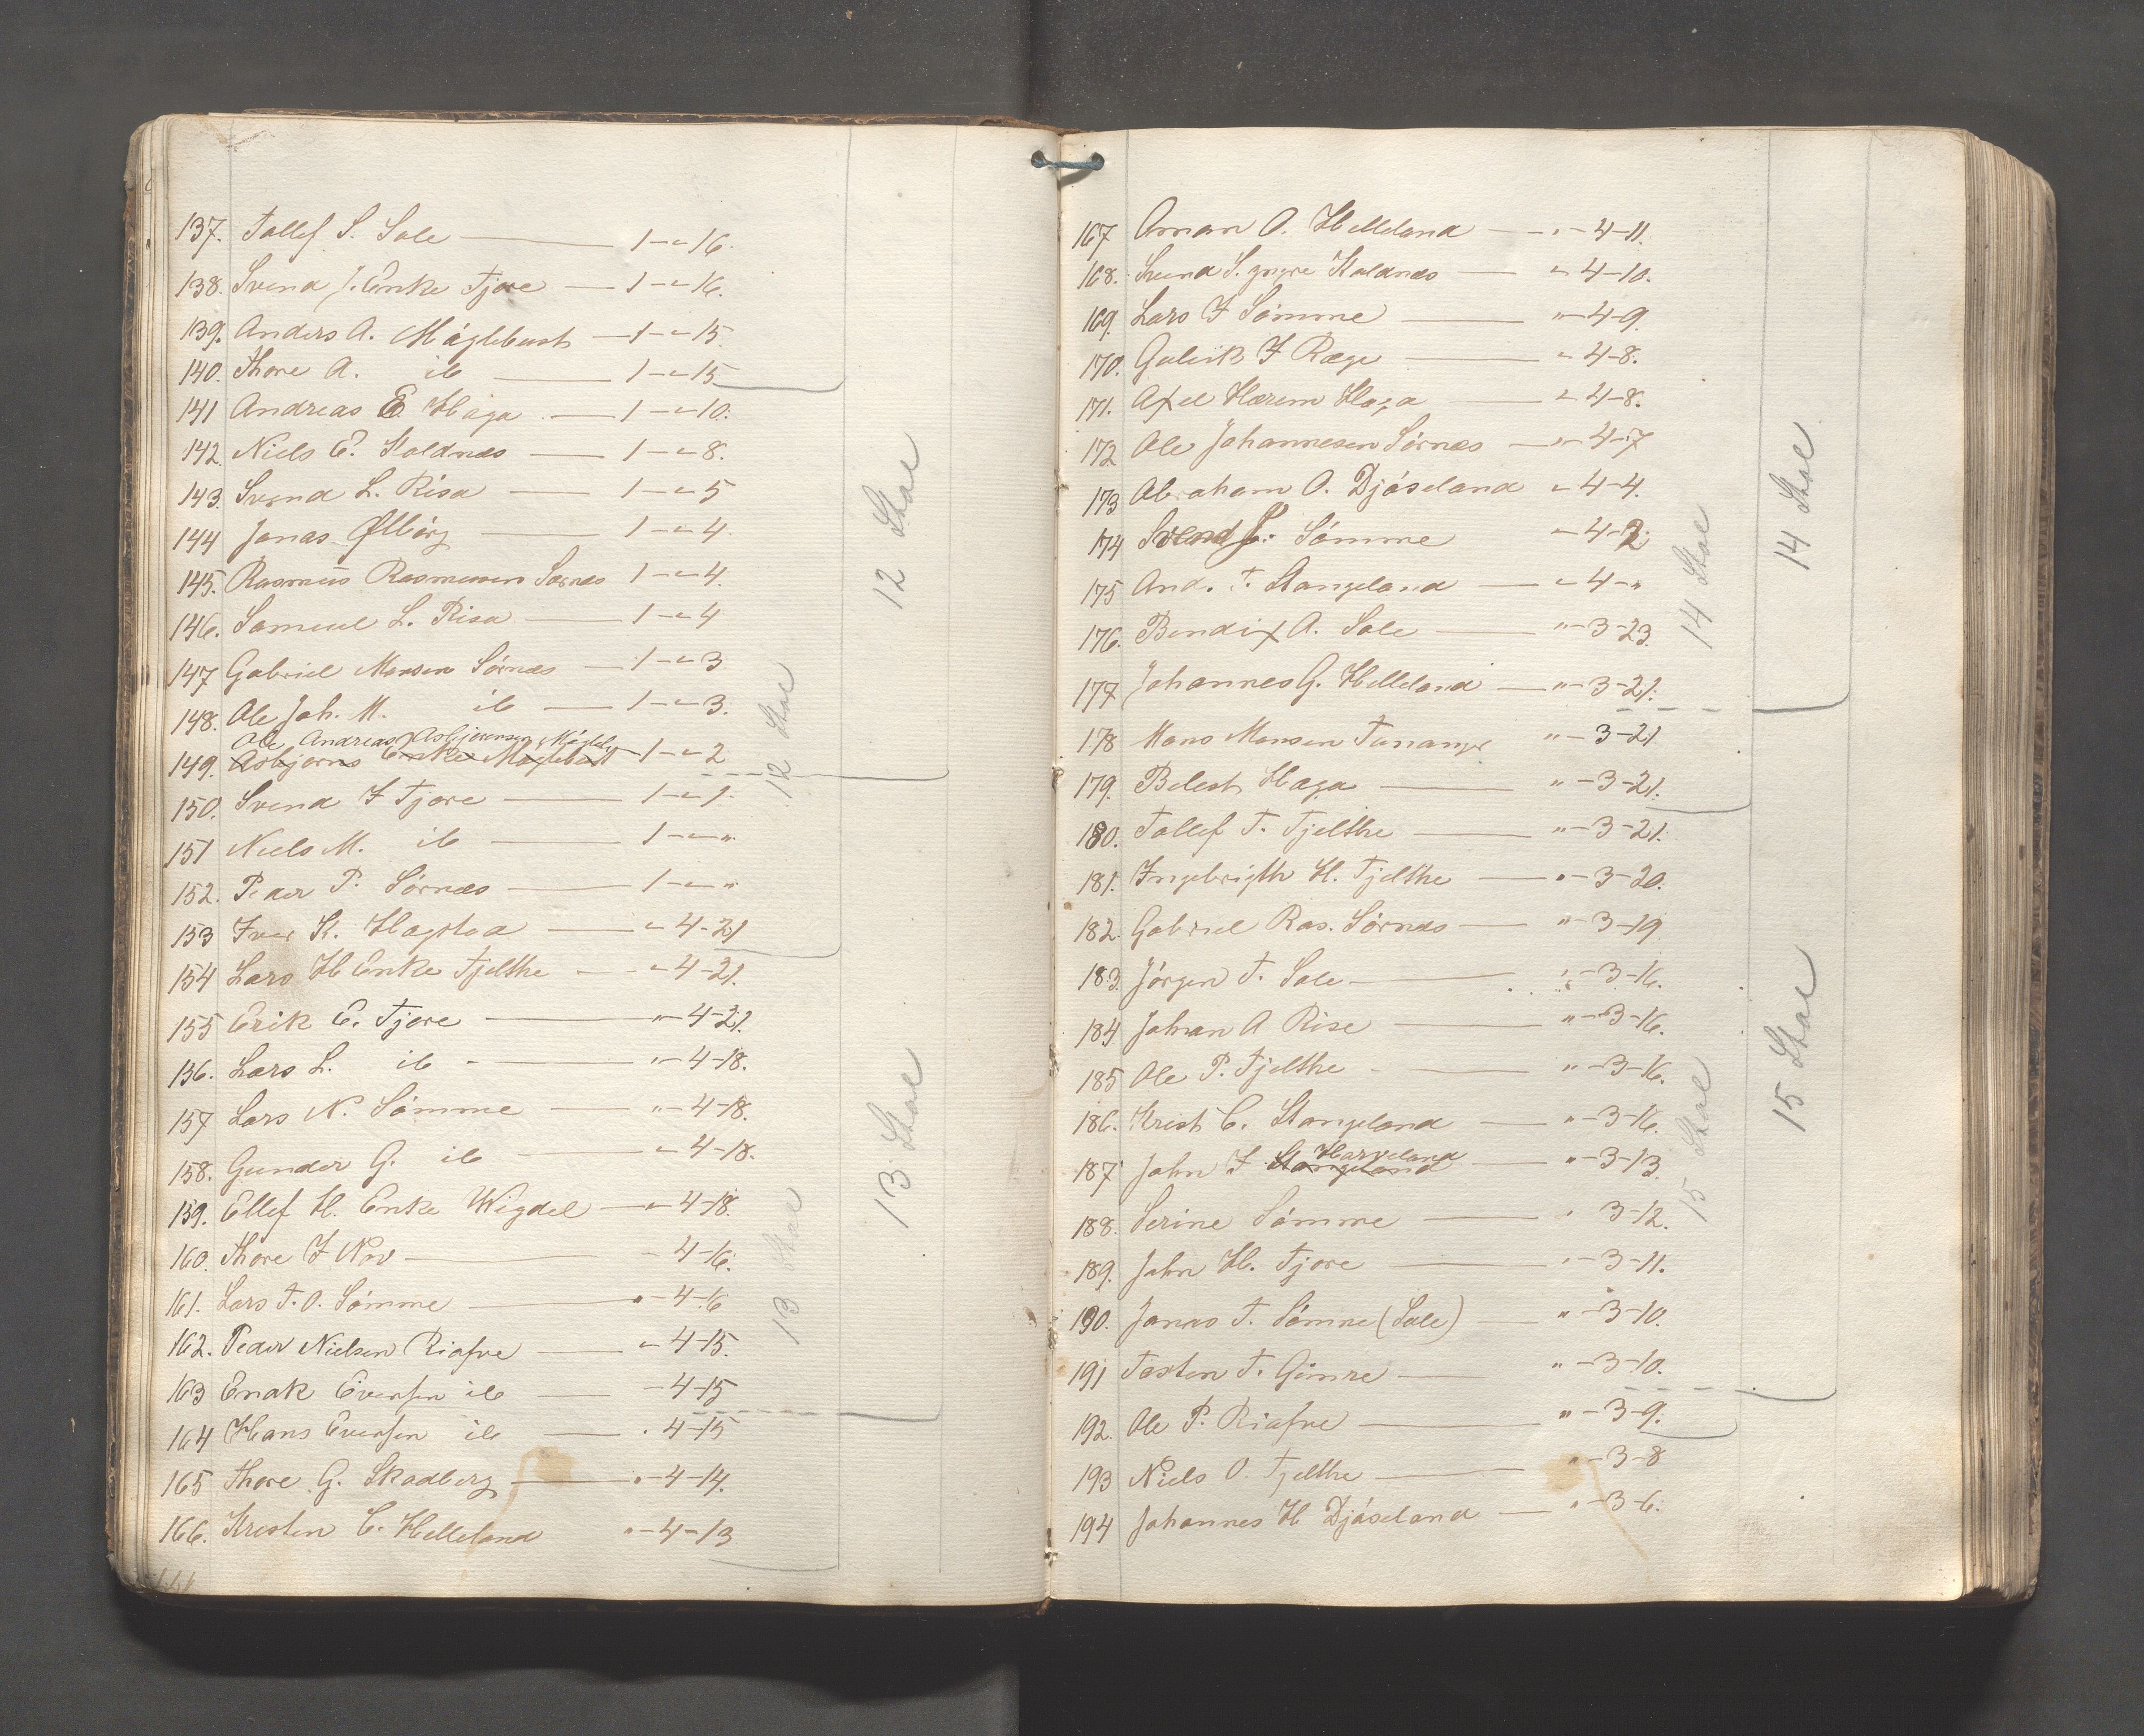 137. Tollef S. Sole — 1 - " - 16.
138. Svend J. Enke Tjore — 1 - " - 16.
139. Anders A. Møglebust — 1 - " - 15.
140. Thore A. ib — 1 - " - 15
141 Andreas E. Haga — 1 - " - 10.
142. Niels E. Koldnes — 1 - " - 8.
143. Svend L. Risa — 1 - " - 5
144 Jonas Ølbörg — 1 - " - 4.
145. Rasmus Rasmussen Sørnes 1 - " - 4.
146. Samuel L. Risa — 1 - " - 4
147 Gabriel Monsen Sørnes — 1 - " - 3
148. Ole Joh. M. ib — 1 - " - 3.
Ole Andreas Asbjørensen Mögleb
149. Asbjørns Enke Møglebust — 1 - " - 2
12 Stoe
12 Stoe
150. Svend F Tjore — 1 - " - 1.
151 Niels M. ib — 1 - " - "
152. Peder P. Sørnes — 1 - " - "
153 Iver K. Hogstad — " - 4 - 21
154 Lars H Enke Tjelthe — " - 4 - 21.
155 Erik E. Tjore — " - 4 - 21.
156. Lars L. ib — " - 4 - 18.
157 Lars N. Sömme — " - 4 - 18.
158. Gunder G. ib — " - 4 - 18.
159. Ellef H. Enke Wigdel — " - 4 - 18.
160. Thore F Nov — " - 4 - 16.
161. Lars T. O. Sömme — " - 4 - 16
162. Peder Nielsen Riafve — " - 4 - 15.
163 Enok Evensen ib — - 4 - 15
13 Stoe
13 Stoe
164 Hans Evensen ib — " 4 - 15
165 Thore G. Skadberg — " - 4 - 14.
166. Kresten C. Helleland " - 4 - 13
167 Oman O. Helleland — " - 4 - 11.
168. Svend S. yngre Koldnes — " - 4 - 10.
169. Lars F Sömme — " - 4 - 9.
170. Gulick F Rege — " - 4 - 8.
171. Axel Harem Haga — " - 4 - 8.
172 Ole Johannesen Sörnes — " - 4 - 7
173 Abraham O. Djöseland " - 4 - 4.
174 Svend J. Sömme " - 4 - 2.
175 And. T. Stangeland — " - 4 - "
176. Bendix A. Sole — " - 3 - 23.
177 Johannes G. Helleland — " - 3 - 21.
14 Stoe
14 Stoe
178 Mons Monsen Tananger " - 3 - 21
179. Belest Haga — " - 3 - 21.
180. Tollef T. Tjelthe — " - 3 - 21.
181. Ingebrigth H. Tjelthe — " - 3 - 20.
182. Gabriel Ras. Sörnes — " - 3 - 19
183. Jörgen T. Sole — " - 3 - 16.
184 Johan A Rise — " - 3 - 16.
185 Ole P. Tjelthe — " - 3 - 16.
186. Krist C. Stangeland — " - 3 - 16.
Harveland
187 John F Stangeland — " - 3 - 13.
188. Serine Sömme — " 3 - 12.
189. John H. Tjore — " - 3 - 11.
190. Jonas T. Sömme (Sole) — " - 3 - 10.
191 Tosten T. Gimre — " - 3 - 10.
15 Stoe
15 Stoe
192. Ole P. Riafve — " - 3 - 9.
193 Niels O. Tjelthe — " - 3 - 8
194 Johannes H Djöseland — " - 3 - 6.